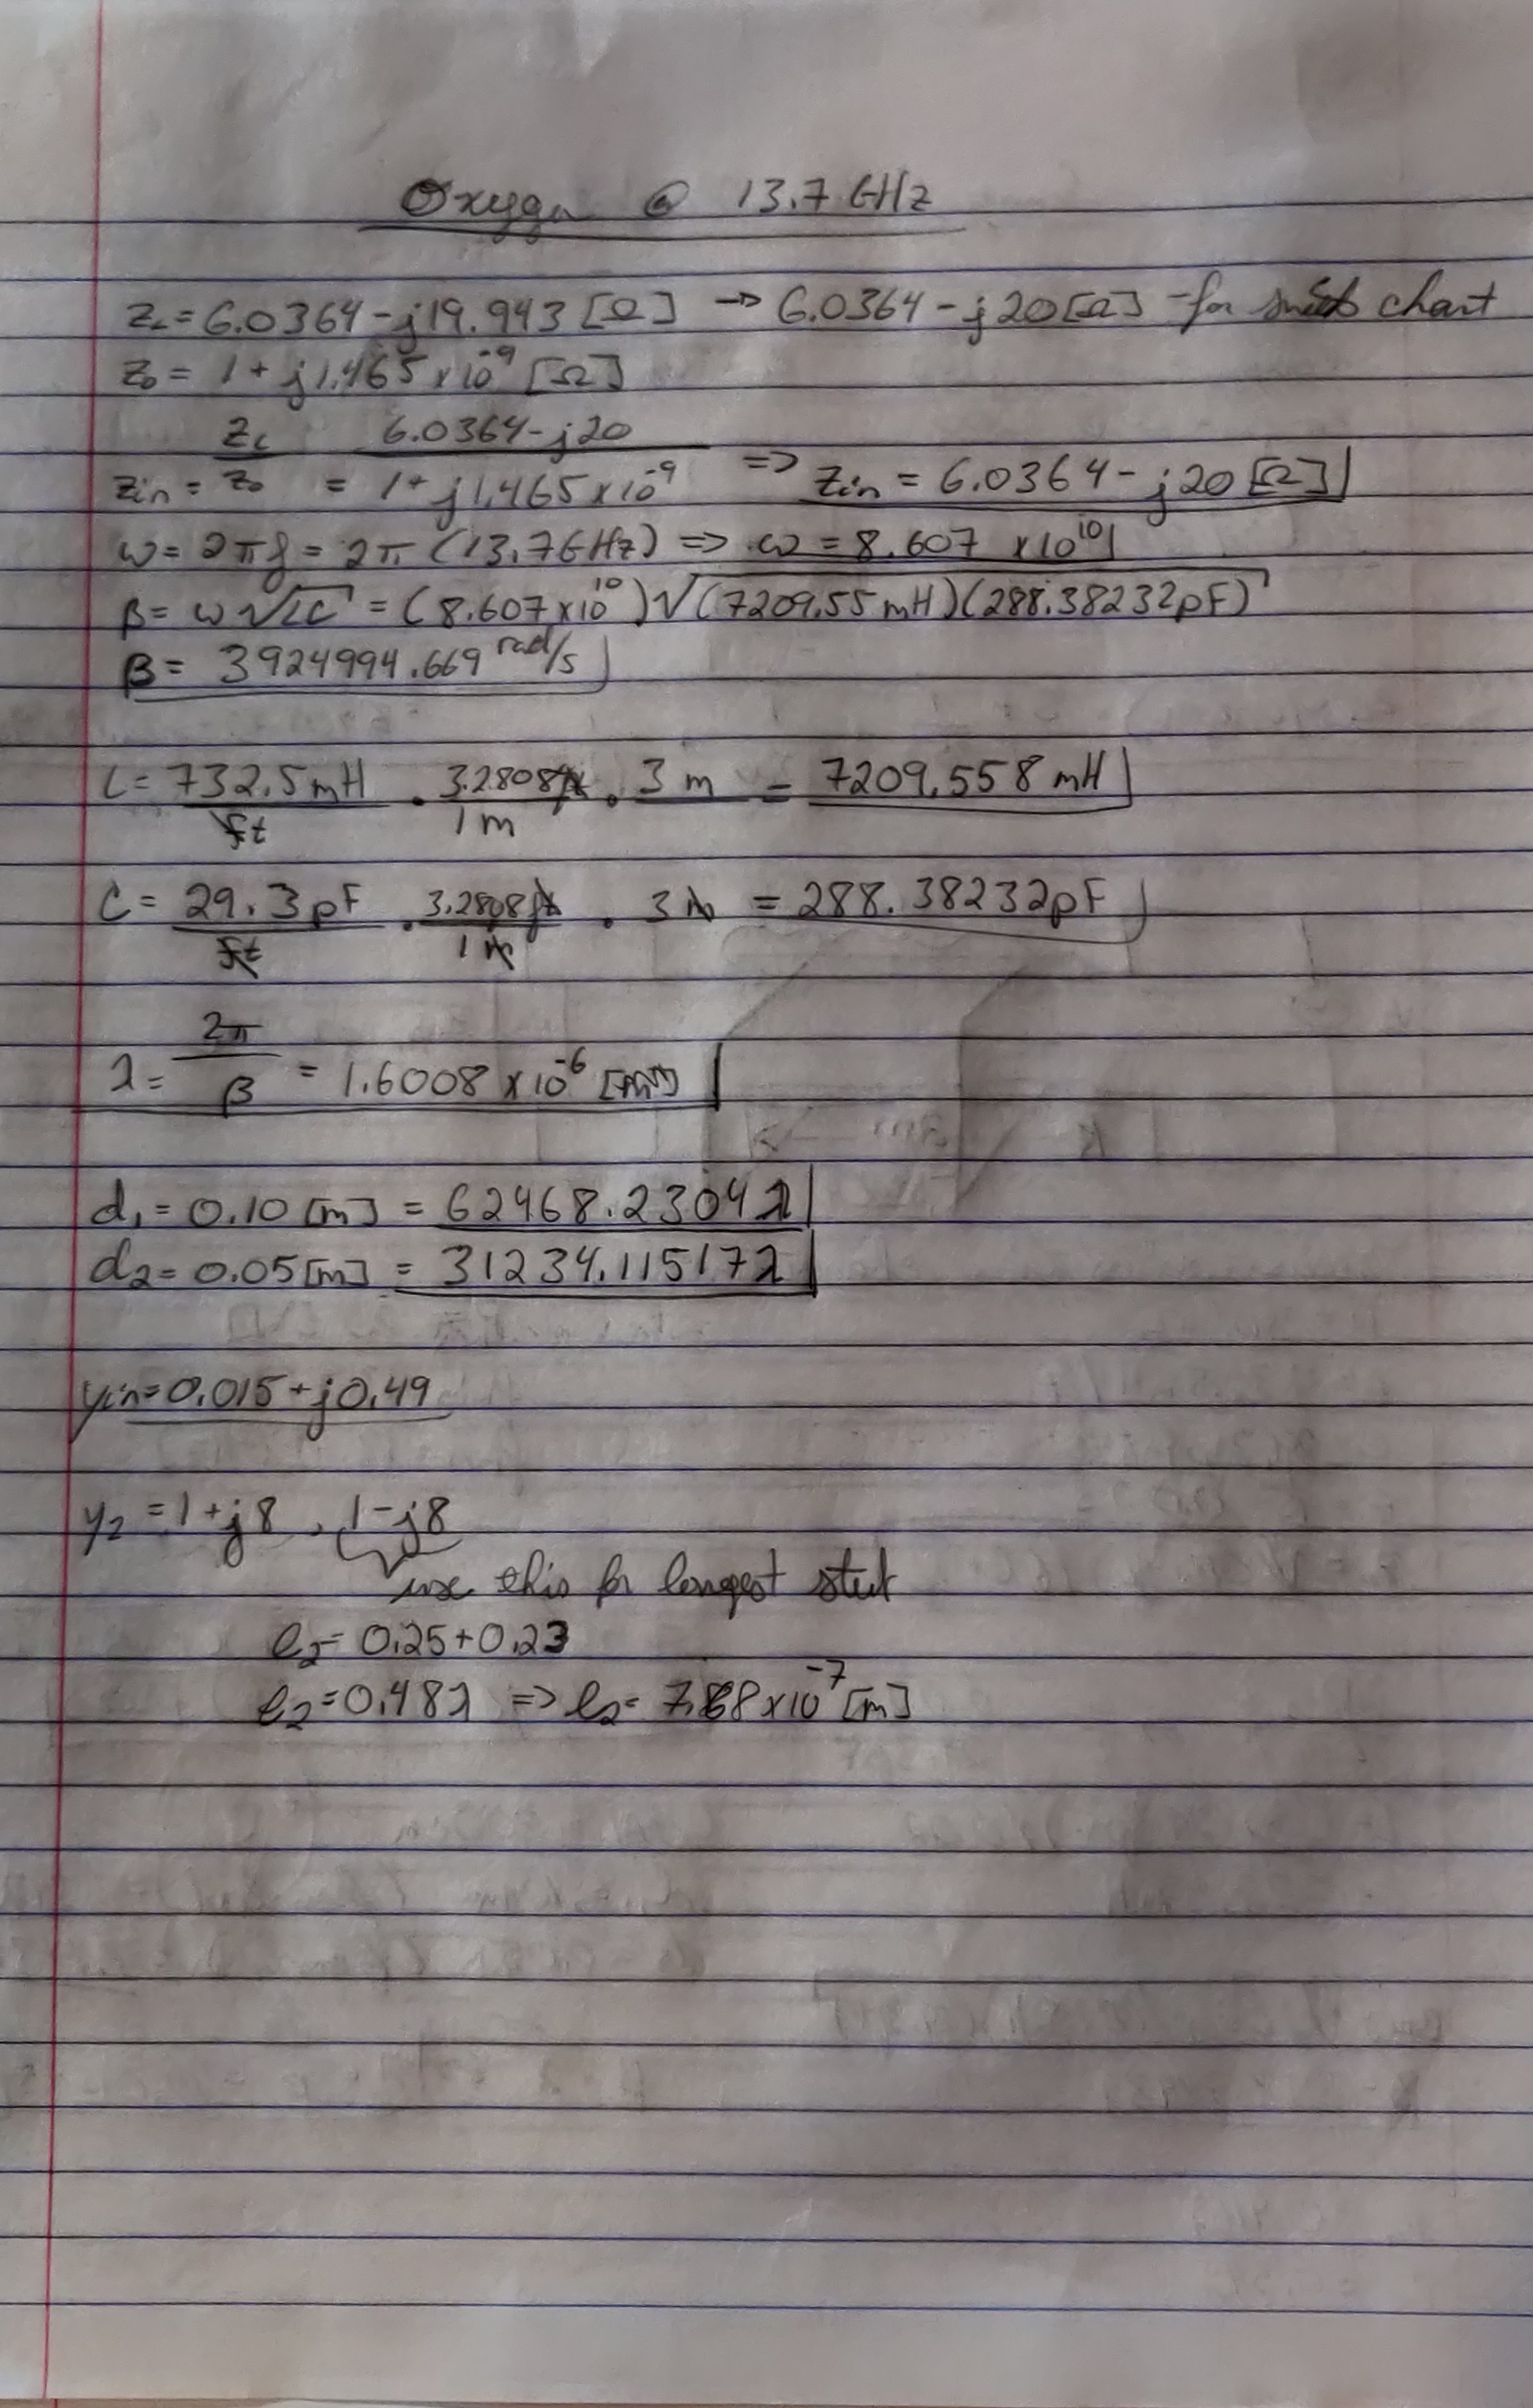 Oxygen @ 13.7 GHz
ZL = 6.0364 - j19.943 [Ω] → 6.0364 - j20 [Ω] - for smith chart
Z0 = 1 + j1.465 x 10^-9 [Ω]
Zin = ZL/Z0 = (6.0364 - j20)/(1 + j1.465 x 10^-9) => Zin = 6.0364 - j20 [Ω]
ω = 2πf = 2π (13.7GHz) => ω = 8.607 x 10^10
β = ω√LC = (8.607 x 10^10)√(7209.55 mH)(288.38232pF)
β = 3924994.669 rad/s
L = 732.5 mH/ft · 3.2808ft/1m · 3 m = 7209.558 mH
C = 29.3 pF/ft · 3.2808ft/1m · 3m = 288.38232pF
λ = 2π/β = 1.6008 x 10^-6 [m]
d1 = 0.10 [m] = 62468.2304λ
d2 = 0.05 [m] = 31234.11517λ
yin = 0.015 + j0.49
y2 = 1 + j8 , 1 - j8
use this for longest stub
l2 = 0.25 + 0.23
l2 = 0.48λ => l2 = 7.68 x 10^-7 [m]